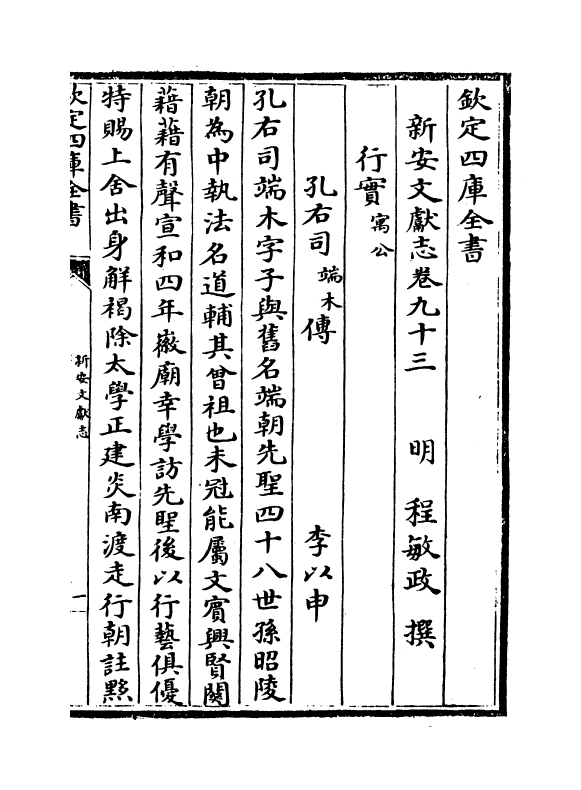 欽定四庫全書
新安文獻志卷九十三　明　程敏政　撰
行實寓公
孔右司端木傳　李以申
孔右司端木字子與舊名端朝先聖四十八世孫昭陵
朝為中執法名道輔其曾祖也未冠能屬文賓興賢關
藉藉有聲宣和四年徽廟幸學訪先聖後以行藝俱優
特賜上舍出身解褐除太學正建炎南渡走行朝註黟
欽定四庫全書
新安文獻志
一